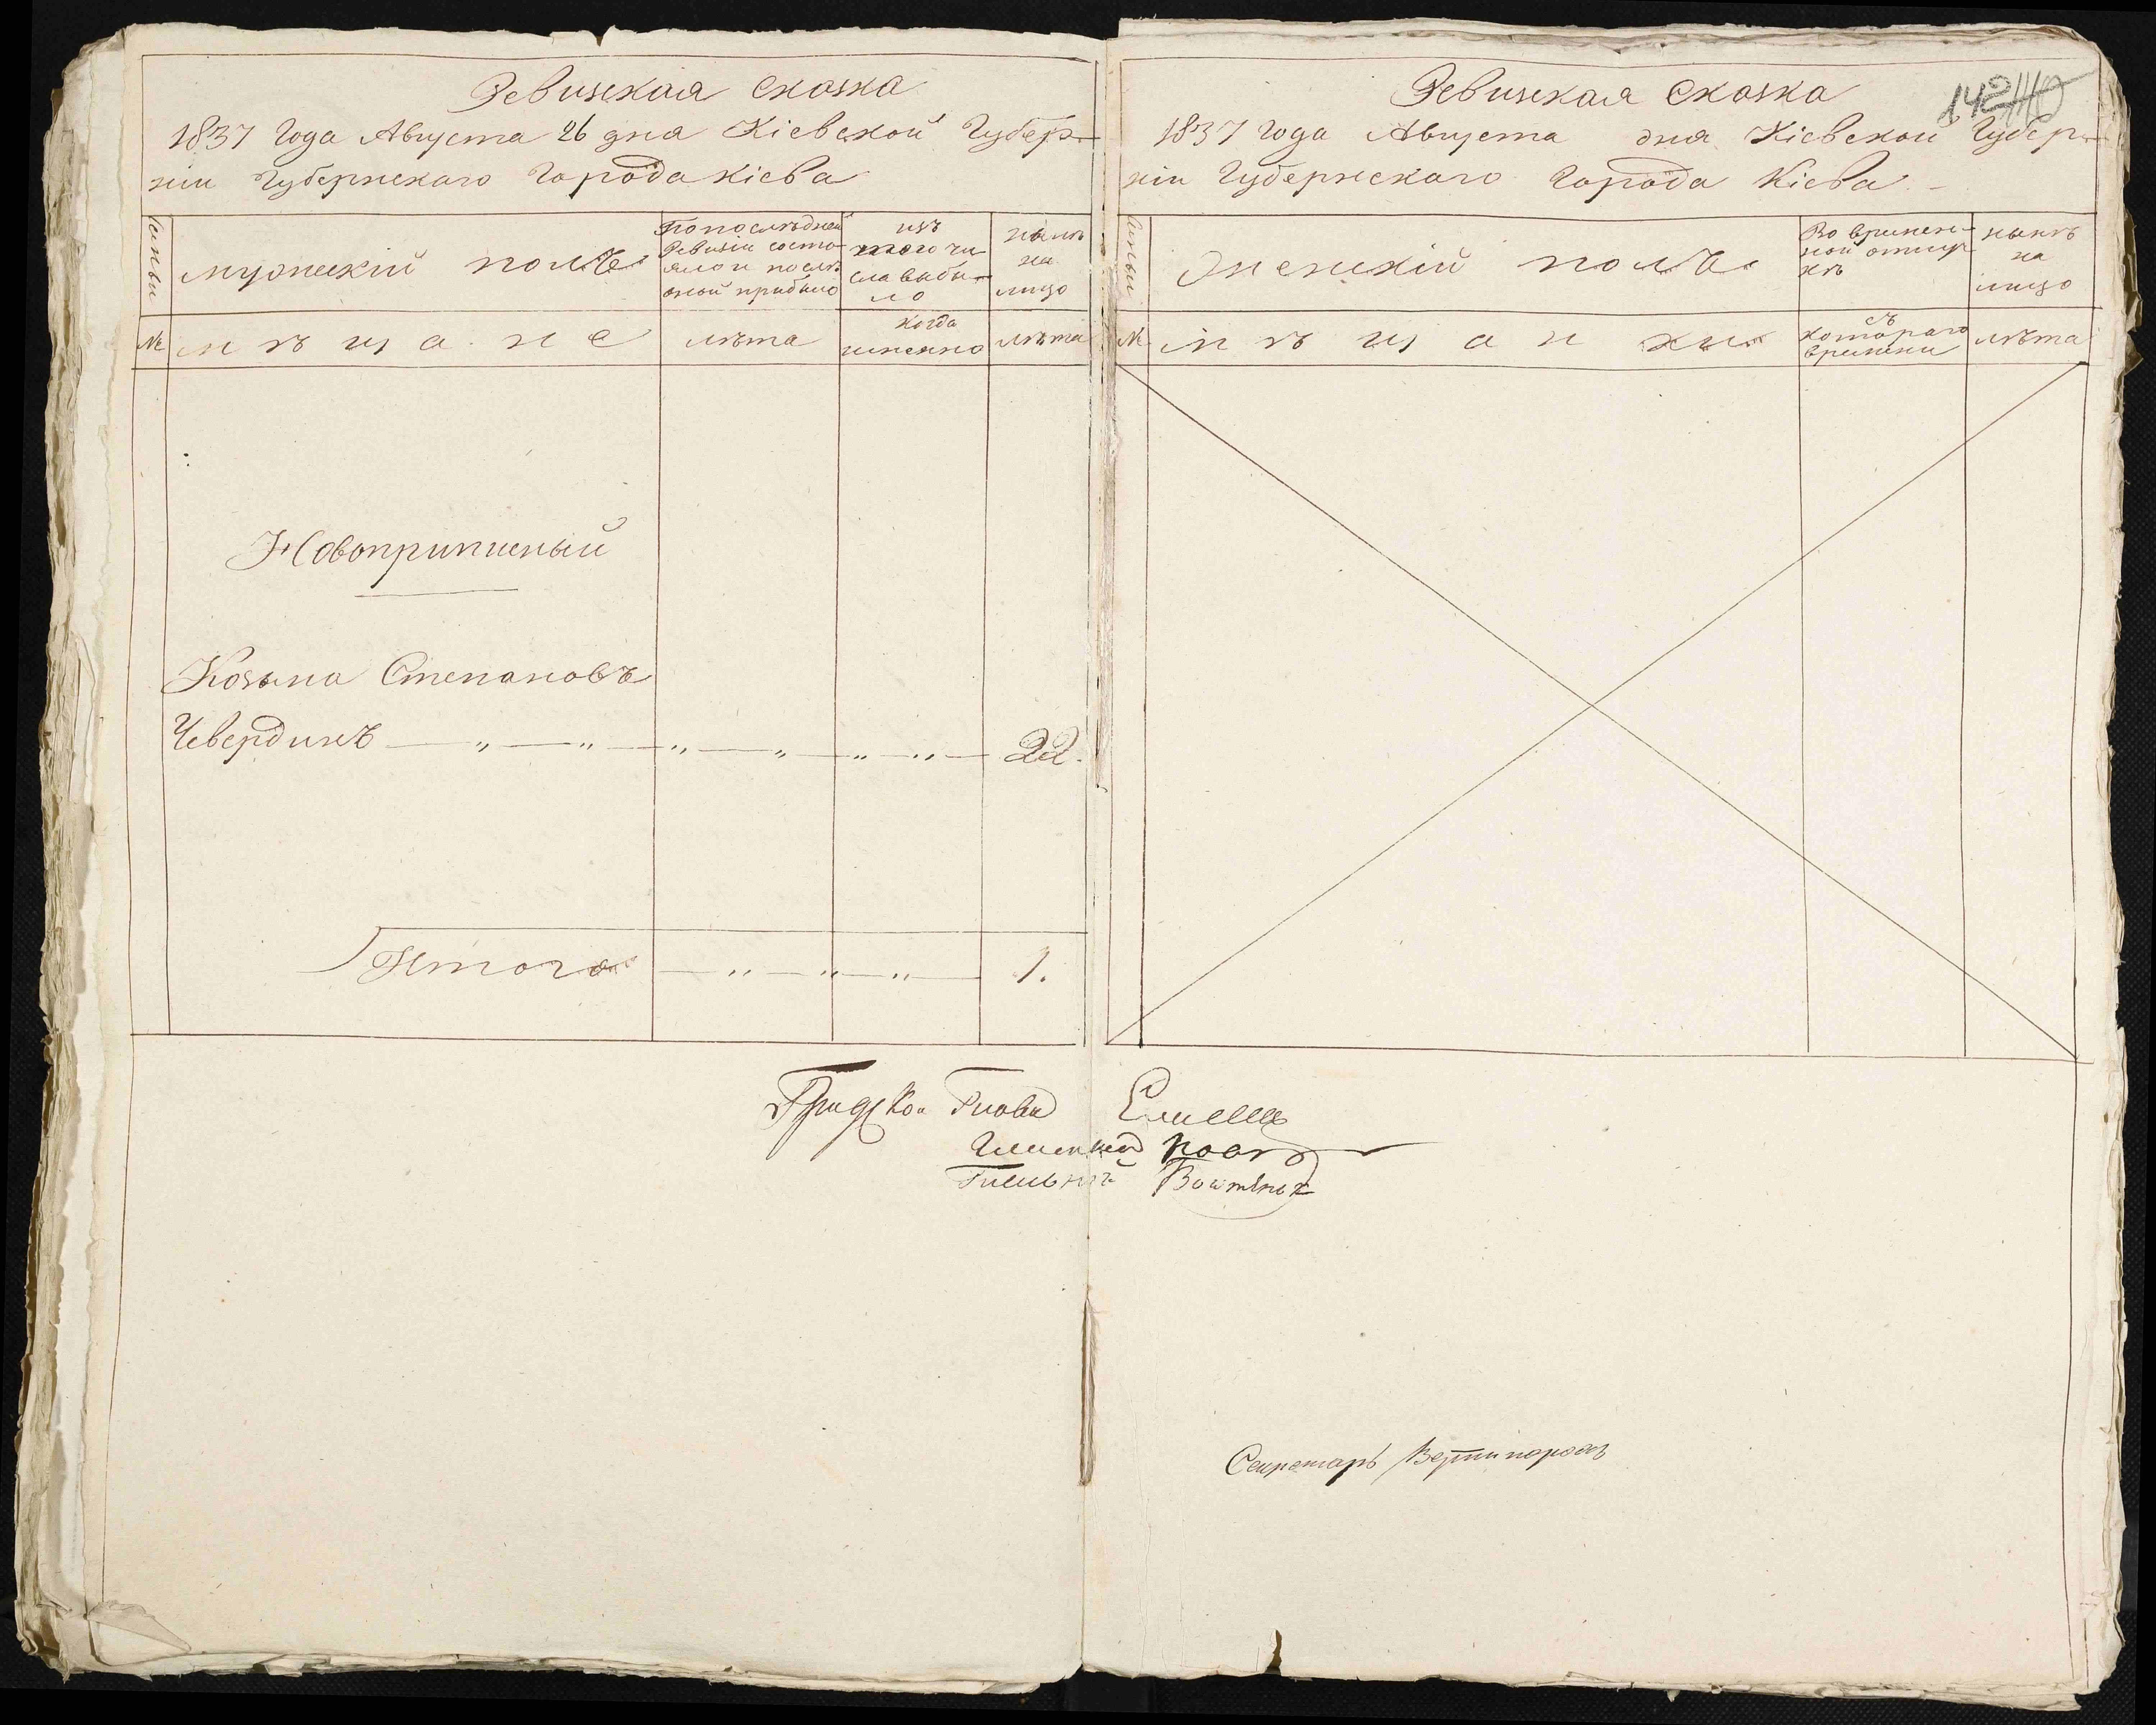 Ревизская сказка
1837 Года Августа 26 дня Кіевской Губер-
ніи Губернскаго Города Кіева
мужескій полъ
По последней
Ревизіи состо-
яло и послѣ
оной прибыло
изъ
того чи
сла выбы-
ло
нынѣ
на
лицо
№
мѣщане
лѣта
когда
именно
лѣта
Новоприписный
Козьма Степановъ
Чевердинъ — „ — „ — „ — „ — „ — „ — 22.
Итого — „ — „ — „ — 1.
142
Ревизская Сказка
1837 года Августа дня Кіевской Губер-
ніи Губернскаго города Кіева
женскій полъ
Во времен-
ной отлуч
кѣ
нынѣ
на
лицо
№
мѣщанки
съ
котораго
времени
лѣта
Градской Глова Елисей
Гласный
Гласный
Секретарь